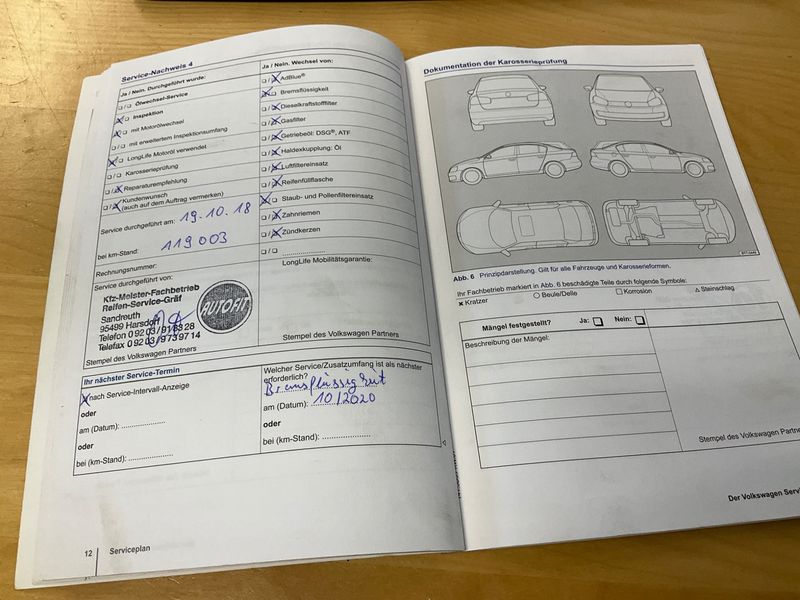 Service-Nachweis 4
Ja / Nein. Durchgeführt wurde:
Ölwechsel-Service
Inspektion
mit Motorölwechsel
mit erweitertem Inspektionsumfang
LongLife Motoröl verwendet
Karosserieprüfung
Reparaturempfehlung
Kundenwunsch
(auch auf dem Auftrag vermerken)
Service durchgeführt am: 19.10.18
bei km-Stand: 119003
Rechnungsnummer:
Service durchgeführt von:
Kfz-Meister-Fachbetrieb
Reifen-Service-Gräf
Sandreuth
95499 Harsdorf
Telefon 0 92 03 / 91 63 28
Telefax 0 92 03 / 973 97 14
AUTOFIT
Stempel des Volkswagen Partners
Ja / Nein. Wechsel von:
AdBlue®
Bremsflüssigkeit
Dieselkraftstofffilter
Gasfilter
Getriebeöl: DSG®, ATF
Haldexkupplung: Öl
Luftfiltereinsatz
Reifenfüllflasche
Staub- und Pollenfiltereinsatz
Zahnriemen
Zündkerzen
LongLife Mobilitätsgarantie:
Stempel des Volkswagen Partners
Ihr nächster Service-Termin
nach Service-Intervall-Anzeige
oder
am (Datum):
oder
bei (km-Stand):
Welcher Service/Zusatzumfang ist als nächster
erforderlich?
Bremsflüssigkeit
am (Datum): 10/2020
oder
bei (km-Stand):
12 Serviceplan
Dokumentation der Karosserieprüfung
Abb. 6 Prinzipdarstellung. Gilt für alle Fahrzeuge und Karosserieformen.
Ihr Fachbetrieb markiert in Abb. 6 beschädigte Teile durch folgende Symbole:
× Kratzer ○ Beule/Delle □ Korrosion △ Steinschlag
Mängel festgestellt? Ja: Nein:
Beschreibung der Mängel:
Stempel des Volkswagen Partners
Der Volkswagen Serv